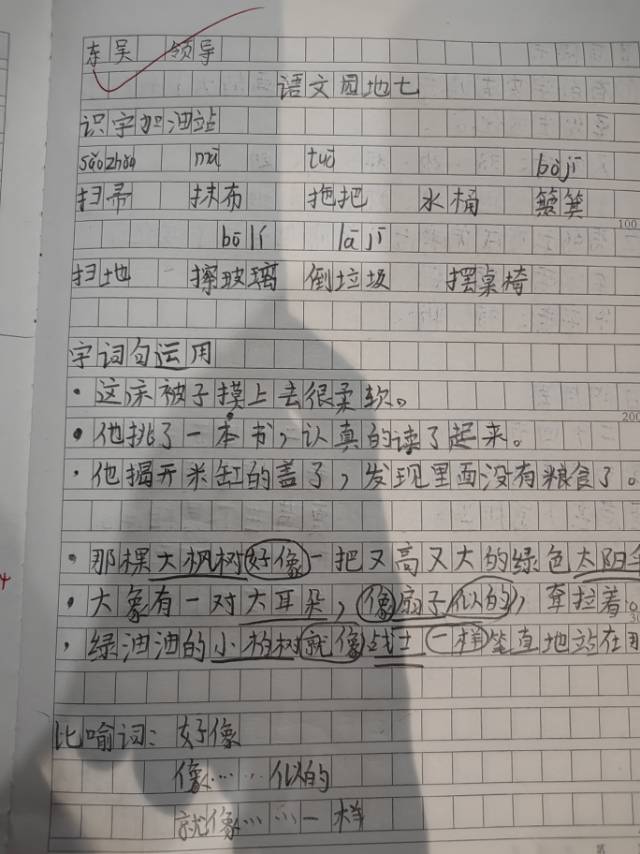 东吴 领导
语文园地七
识字加油站
sàozhou mā tuō bòjī
扫帚 抹布 拖把 水桶 簸箕
bō lí lā jī
扫地 擦玻璃 倒垃圾 摆桌椅
字词句运用
·这床被子摸上去很柔软。
·他挑了一本书,认真的读了起来。
·他揭开米缸的盖子,发现里面没有粮食了。
·那棵大枫树好像一把又高又大的绿色太阳伞
·大象有一对大耳朵,像扇子似的,耷拉着。
·绿油油的小柏树就像战士一样笔直地站在那
比喻词:好像
像……似的
就像……一样
100
200